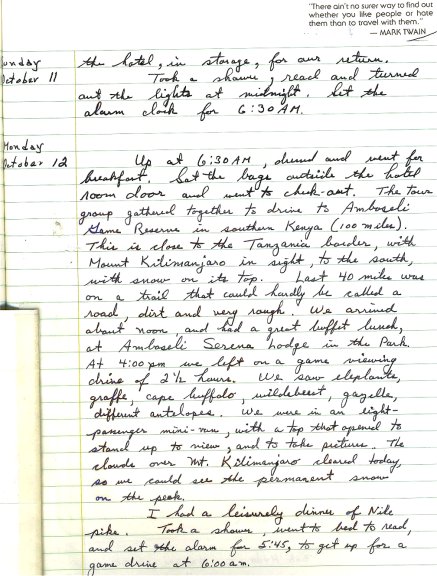 "There ain't no surer way to find out
whether you like people or hate
them than to travel with them."
— MARK TWAIN
unday
October 11
the hotel, in storage, for our return.
Took a shower, read and turned
out the lights at midnight. Set the
alarm clock for 6:30 AM.
Monday
October 12
Up at 6:30 AM, dressed and went for
breakfast. Set the bags outside the hotel
room door and went to check-out. The tour
group gathered together to drive to Amboseli
Game Reserve in southern Kenya (100 miles).
This is close to the Tanzania border, with
Mount Kilimanjaro in sight, to the south,
with snow on its top. Last 40 miles was
on a trail that could hardly be called a
road, dirt and very rough. We arrived
about noon, and had a great buffet lunch,
at Amboseli Serena Lodge in the Park.
At 4:00 pm we left on a game viewing
drive of 2 1/2 hours. We saw elephants,
graffe, cape buffalo, wildebeest, gazelle,
different antelopes. We were in an eight-
passenger mini-van, with a top that opened to
stand up to view, and to take pictures. The
clouds over Mt. Kilimanjaro cleared today,
so we could see the permanent snow
on the peak.
I had a leisurely dinner of Nile
pike. Took a shower, went to bed to read,
and set the alarm for 5:45, to get up for a
game drive at 6:00 am.